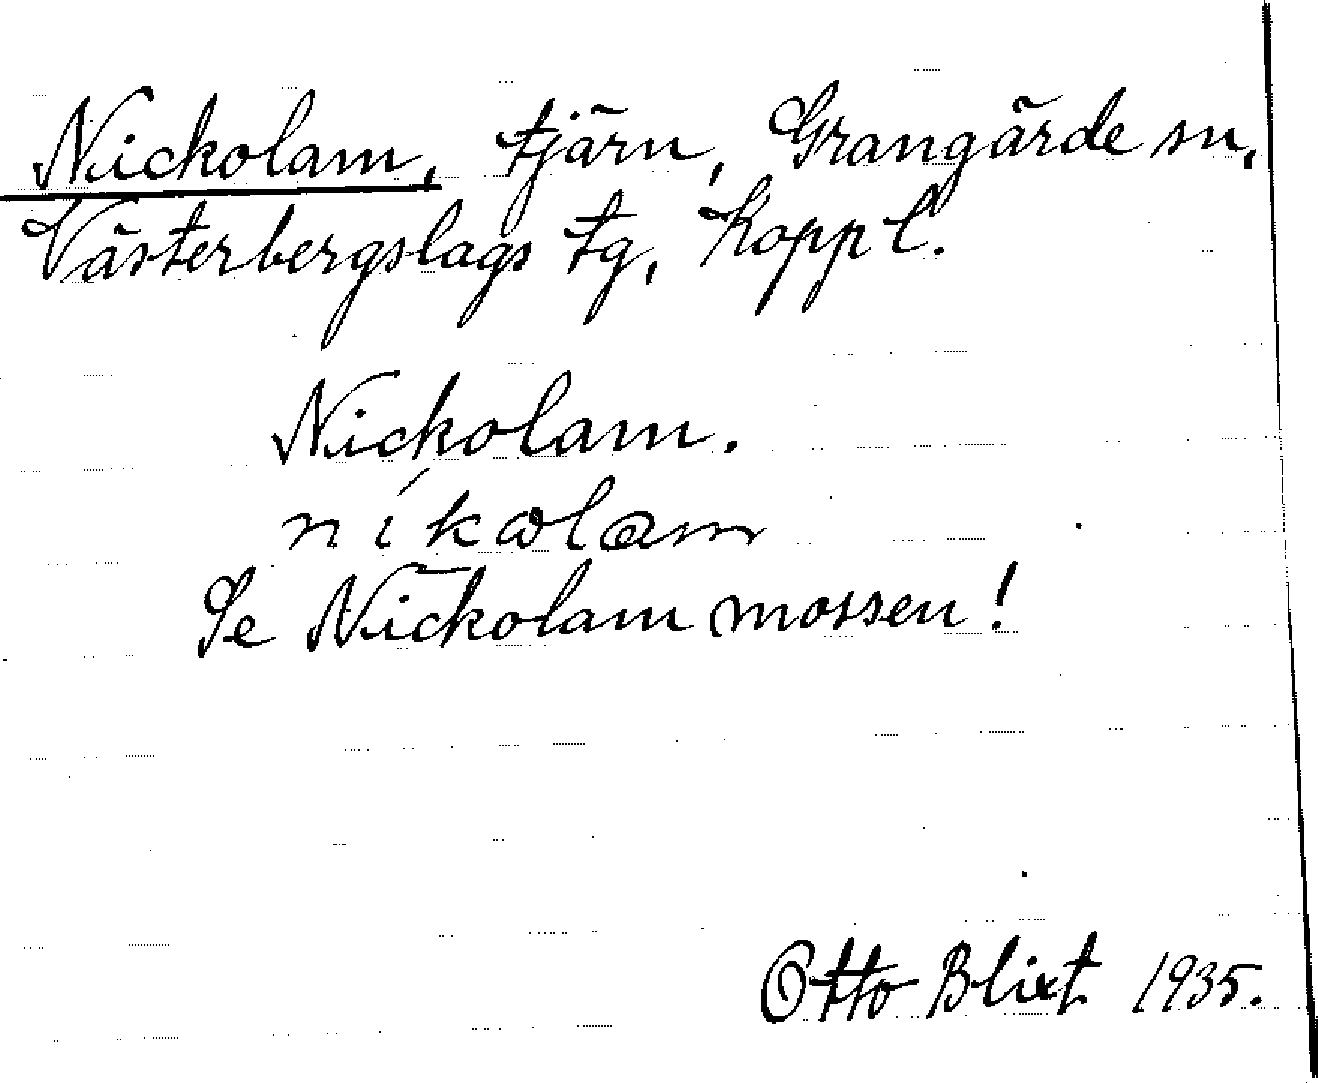 Nickolam, tjärn, Grangärde sn,
Västerbergslags tg, Kopp l.
Nickolam.
níkωlαm
Se Nickolammossen!
Otto Blixt 1935.